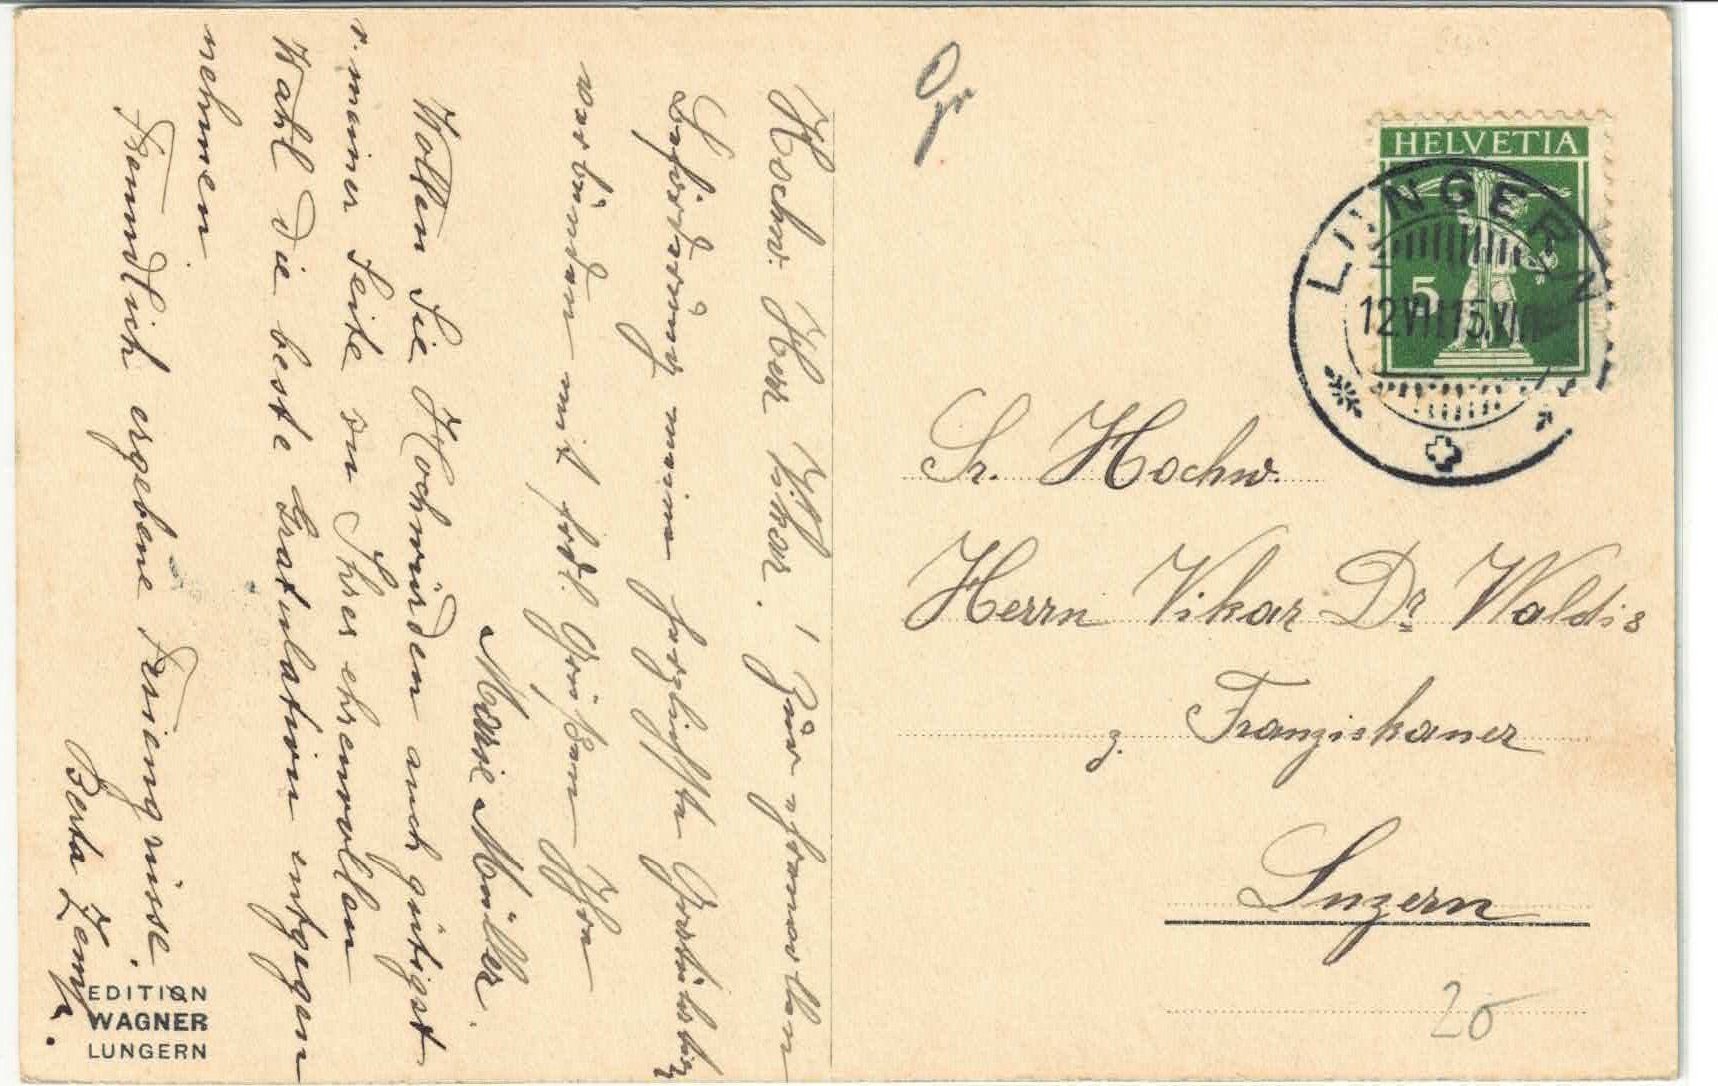 Hochw. Herr Vikar. ! Zur ehrenvollen
Beförderung meine herzlichste
verbunden mit frdl. Grüßen Ihre
Marie Müller.
Wollen Sie Hochwürden auch gütigst
v. meiner Seite zu Ihrer ehrenvollen
Wahl die beste Gratulation entgegen
nehmen
Freundlich ergebene Feriengrüsse.
Berta
EDITION
WAGNER
LUNGERN
HELVETIA
5
LUNGERN
12 VII 15
Sr. Hochw.
Herrn Vikar Dr Waldis
z. Franziskaner
Luzern
20